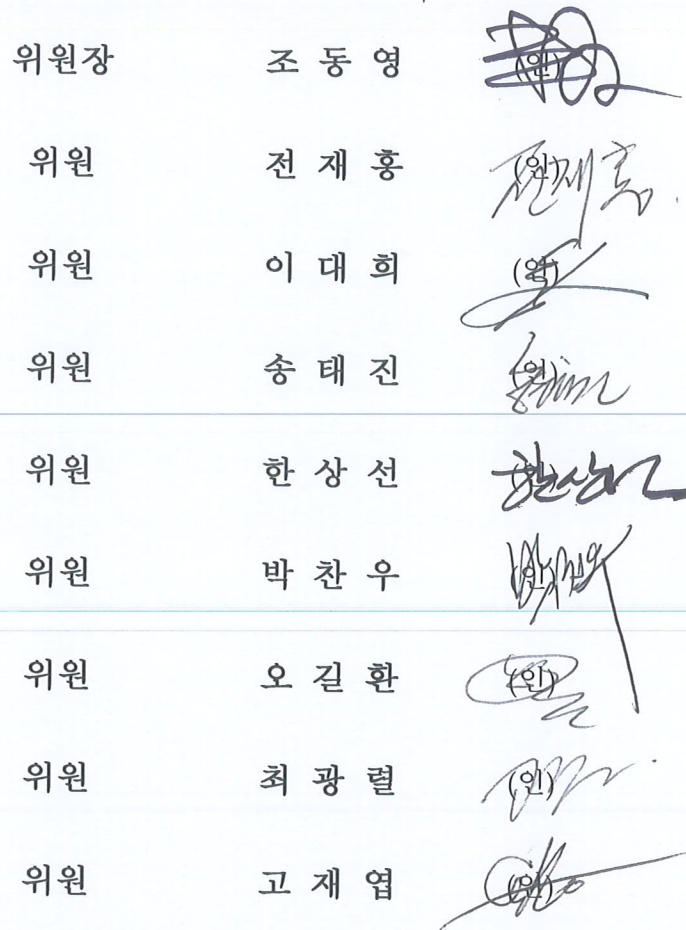 위원장 조 동 영 (인)
위원 전 재 홍 (인) 전재홍
위원 이 대 희 (인)
위원 송 태 진 (인)
위원 한 상 선 (인) 한상선
위원 박 찬 우 (인)
위원 오 길 환 (인)
위원 최 광 렬 (인)
위원 고 재 엽 (인)